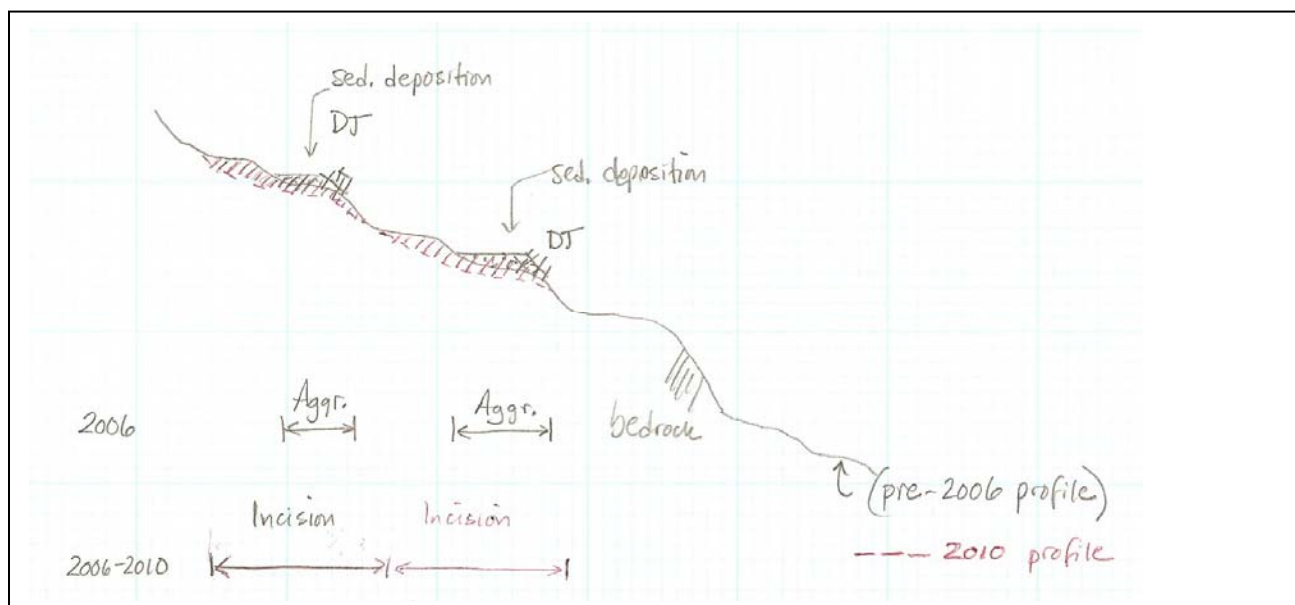 sed. deposition
DJ
sed. deposition
DJ
2006
Aggr.
Aggr.
bedrock
(pre-2006 profile)
Incision
Incision
2006-2010
2010 profile